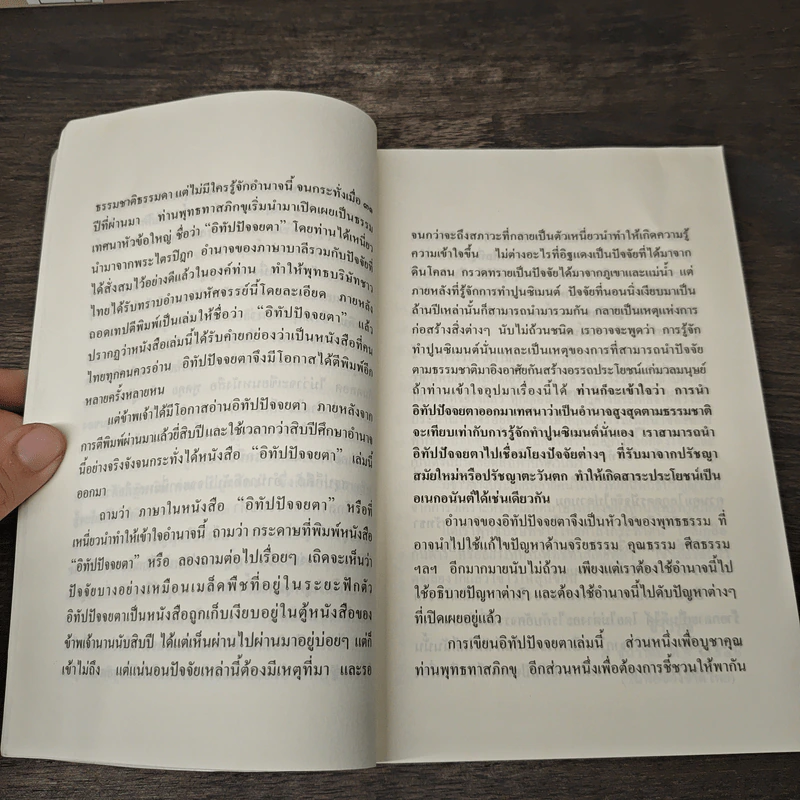 ธรรมชาติธรรมดา แต่ไม่มีใครรู้จักอำนาจนี้ จนกระทั่งเมื่อ ๓๑
ปีที่ผ่านมา ท่านพุทธทาสภิกขุเริ่มนำมาเปิดเผยเป็นธรรม
เทศนาหัวข้อใหญ่ ชื่อว่า “อิทัปปัจจยตา” โดยท่านได้เหนี่ยว
นำมาจากพระไตรปิฎก อำนาจของภาษาบาลีรวมกับปัจจัยที่
ได้สั่งสมไว้อย่างดีแล้วในองค์ท่าน ทำให้พุทธบริษัทชาว
ไทยได้รับทราบอำนาจมหัศจรรย์นี้โดยละเอียด ภายหลัง
ถอดเทปตีพิมพ์เป็นเล่มให้ชื่อว่า “อิทัปปัจจยตา” แล้ว
ปรากฏว่าหนังสือเล่มนี้ได้รับคำยกย่องว่าเป็นหนังสือที่คน
ไทยทุกคนควรอ่าน อิทัปปัจจยตาจึงมีโอกาสได้ตีพิมพ์อีก
หลายครั้งหลายหน
แต่ข้าพเจ้าได้มีโอกาสอ่านอิทัปปัจจยตา ภายหลังจาก
การตีพิมพ์ผ่านมาแล้วยี่สิบปีและใช้เวลากว่าสิบปีศึกษาอำนาจ
นี้อย่างจริงจังจนกระทั่งได้หนังสือ “อิทัปปัจจยตา” เล่มนี้
ออกมา
ถามว่า ภาษาในหนังสือ “อิทัปปัจจยตา” หรือที่
เหนี่ยวนำทำให้เข้าใจอำนาจนี้ ถามว่า กระดาษที่พิมพ์หนังสือ
“อิทัปปัจจยตา” หรือ ลองถามต่อไปเรื่อยๆ เถิดจะเห็นว่า
ปัจจัยบางอย่างเหมือนเมล็ดพืชที่อยู่ในระยะฟักตัว
อิทัปปัจจยตาเป็นหนังสือถูกเก็บเงียบอยู่ในตู้หนังสือของ
ข้าพเจ้านานนับสิบปี ได้แต่เห็นผ่านไปผ่านมาอยู่บ่อยๆ แต่ก็
เข้าไม่ถึง แต่แน่นอนปัจจัยเหล่านี้ต้องมีเหตุที่มา และรอ
จนกว่าจะถึงสภาวะที่กลายเป็นตัวเหนี่ยวนำทำให้เกิดความรู้
ความเข้าใจขึ้น ไม่ต่างอะไรที่อิฐแดงเป็นปัจจัยที่ได้มาจาก
ดินโคลน กรวดทรายเป็นปัจจัยได้มาจากภูเขาและแม่น้ำ แต่
ภายหลังที่รู้จักการทำปูนซิเมนต์ ปัจจัยที่นอนนิ่งเงียบมาเป็น
ล้านปีเหล่านั้นก็สามารถนำมารวมกัน กลายเป็นเหตุแห่งการ
ก่อสร้างสิ่งต่างๆ นับไม่ถ้วนชนิด เราอาจจะพูดว่า การรู้จัก
ทำปูนซิเมนต์นั่นแหละเป็นเหตุของการที่สามารถนำปัจจัย
ตามธรรมชาติมาอิงอาศัยกันสร้างอรรถประโยชน์แก่มวลมนุษย์
ถ้าท่านเข้าใจอุปมาเรื่องนี้ได้ ท่านก็จะเข้าใจว่า การนำ
อิทัปปัจจยตาออกมาเทศนาว่าเป็นอำนาจสูงสุดตามธรรมชาติ
จะเทียบเท่ากับการรู้จักทำปูนซิเมนต์นั่นเอง เราสามารถนำ
อิทัปปัจจยตาไปเชื่อมโยงปัจจัยต่างๆ ที่รับมาจากปรัชญา
สมัยใหม่หรือปรัชญาตะวันตก ทำให้เกิดสาระประโยชน์เป็น
อเนกอนันต์ได้เช่นเดียวกัน
อำนาจของอิทัปปัจจยตาจึงเป็นหัวใจของพุทธธรรม ที่
อาจนำไปใช้แก้ไขปัญหาด้านจริยธรรม คุณธรรม ศีลธรรม
ฯลฯ อีกมากมายนับไม่ถ้วน เพียงแต่เราต้องใช้อำนาจนี้ไป
ใช้อธิบายปัญหาต่างๆ และต้องใช้อำนาจนี้ไปดับปัญหาต่างๆ
ที่เปิดเผยอยู่แล้ว
การเขียนอิทัปปัจจยตาเล่มนี้ ส่วนหนึ่งเพื่อบูชาคุณ
ท่านพุทธทาสภิกขุ อีกส่วนหนึ่งเพื่อต้องการชี้ชวนให้พากัน